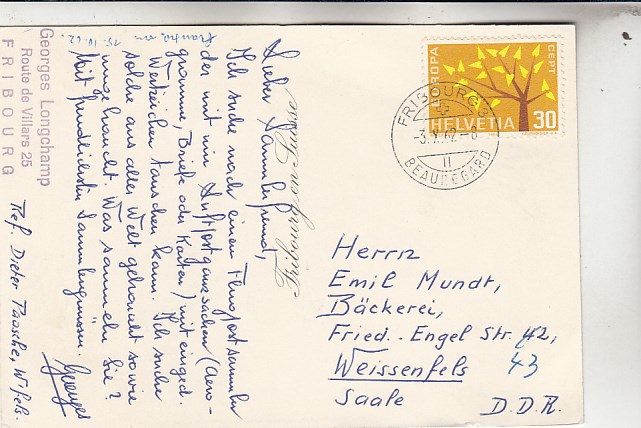 Georges Longchamp
Route de Villars 25
FRIBOURG
25.10.62.
Lieber Sammlerfreund,
Ich suche nach einem Flugpostsammler
der mit mir Luftpostganzsachen (Aero-
gramme, Briefe oder Karten) mit einged.
Wertzeichen tauschen kann. Ich suche
solche aus aller Welt gebraucht sowie
ungebraucht. Was sammeln Sie?
Mit freundlichsten Sammlergrüssen.
Georges
Ref. Dieter Paasche, W'fels.
EUROPA
CEPT
HELVETIA 30
FRIBOURG 3
BEAUREGARD
Herrn
Emil Mundt,
Bäckerei,
Fried.-Engel Str. 42,
43
Weissenfels
Saale
D.D.R.